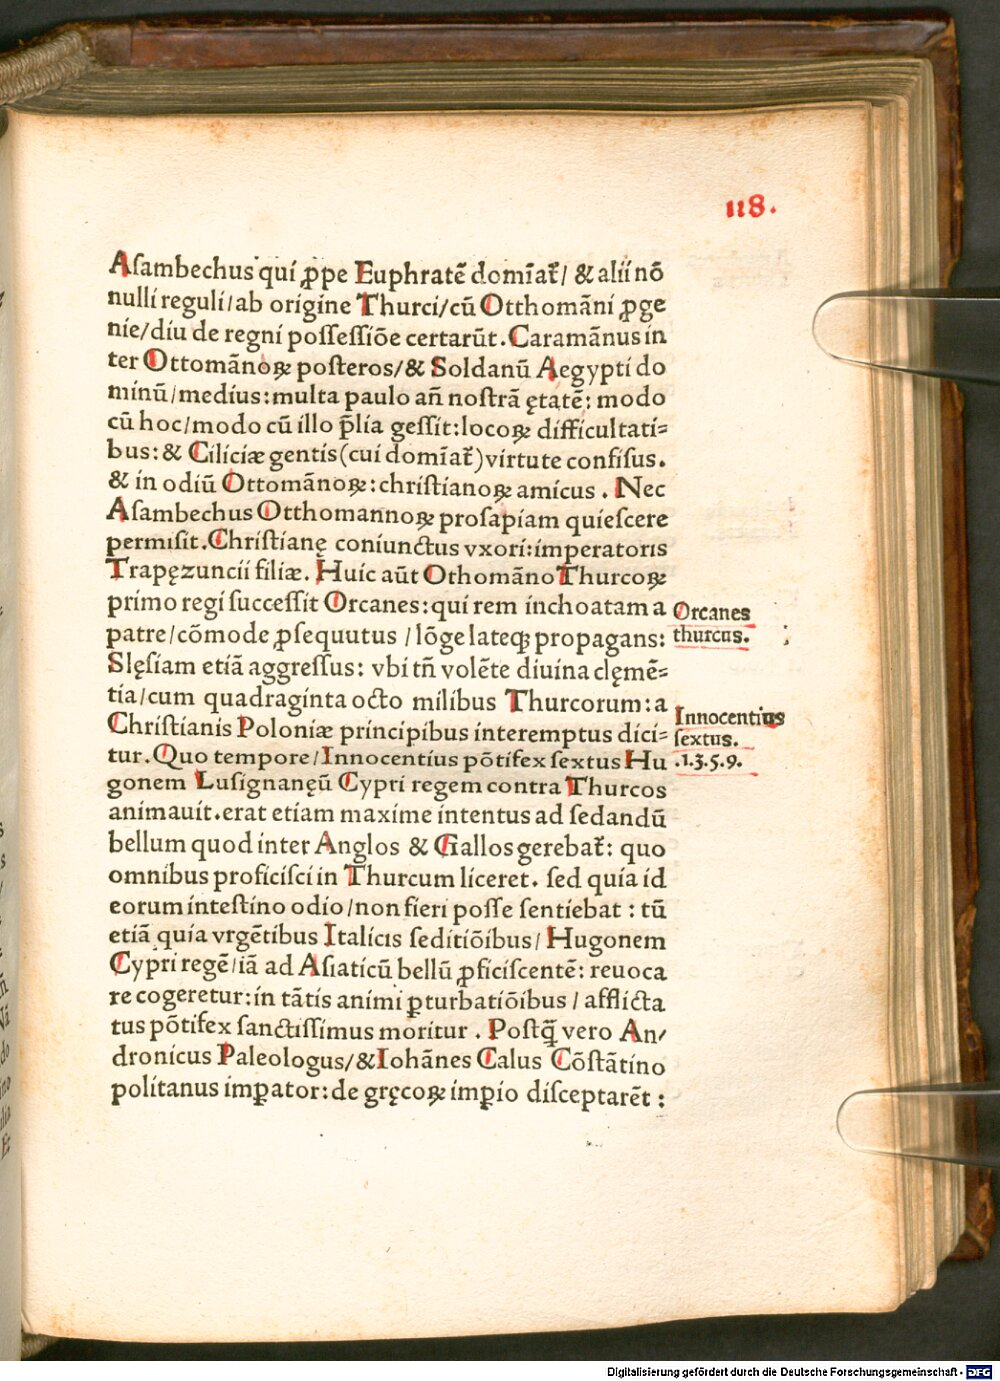 118.
Aſambechus qui ꝓpe Euphratē domīat᷑/ & alii nō
nulli reguli/ab origine Thurci/cū Otthomāni ꝓge
nie/diu de regni poſſeſſiōe certarūt. Caramānus in
ter Ottomānoꝝ poſteros/& Soldanū Aegypti do
minū/medius: multa paulo añ noſtrā ętatē: modo
cū hoc/modo cū illo p̄lia geſſit: locoꝝ difficultati⸗
bus: & Ciliciæ gentis (cui domīat᷑) virtute confiſus.
& in odiū Ottomānoꝝ: chriſtianoꝝ amicus. Nec
Aſambechus Otthomannoꝝ proſapiam quieſcere
permiſit. Chriſtianę coniunctus vxori: imperatoris
Trapęzuncii filiæ. Huic aūt Othomāno Thurcoꝝ
primo regi ſucceſſit Orcanes: qui rem inchoatam a
Orcanes
patre/cōmode ꝓſequutus /lōge lateqꝫ propagans:
thurcus.
Slęſiam etiā aggreſſus: vbi tñ volēte diuina clęmē⸗
tia/cum quadraginta octo milibus Thurcorum: a
Chriſtianis Poloniæ principibus interemptus dici⸗
Innocentius
ſextus.
tur. Quo tempore/Innocentius pōtifex ſextus Hu
.1.3.5.9.
gonem Luſignanęū Cypri regem contra Thurcos
animauit. erat etiam maxime intentus ad ſedandū
bellum quod inter Anglos & Gallos gerebat᷑: quo
omnibus proficiſci in Thurcum liceret. ſed quia id
eorum inteſtino odio/non fieri poſſe ſentiebat: tū
etiā quia vrgētibus Italicis ſeditiōibus/ Hugonem
Cypri regē/iā ad Aſiaticū bellū ꝓficiſcentē: reuoca
re cogeretur: in tātis animi ꝑturbatiōibus / afflicta
tus pōtifex ſanctiſſimus moritur. Poſtq̄ vero An/
dronicus Paleologus/& Iohānes Calus Cōſtātino
politanus imꝑator: de gręcoꝝ imꝑio diſceptarēt:
Digitalisierung gefördert durch die Deutsche Forschungsgemeinschaft - DFG